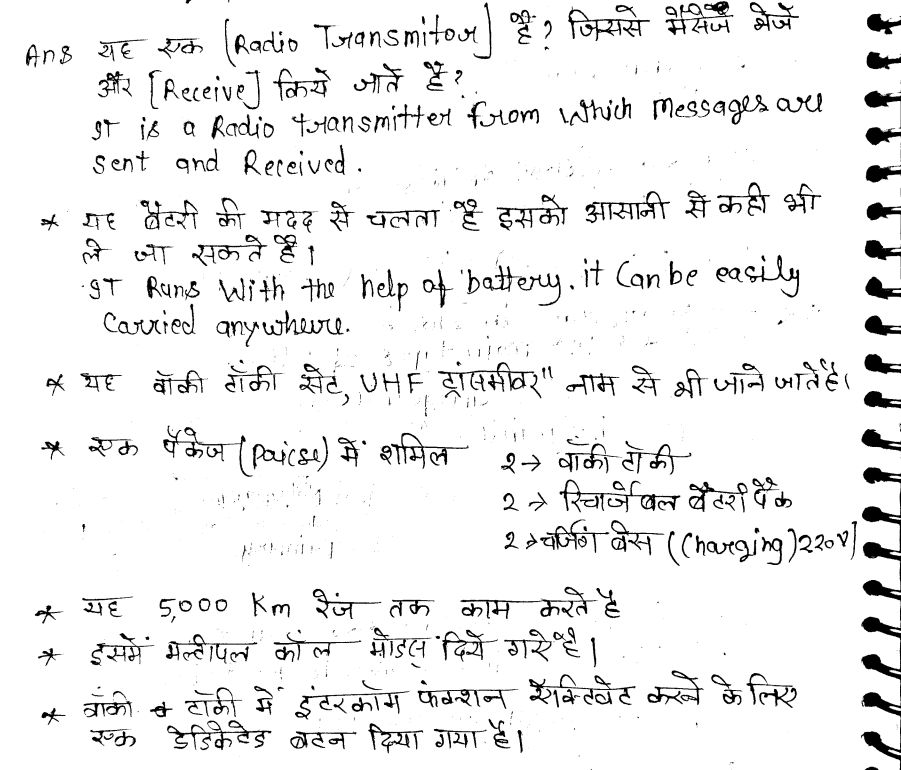 Ans यह एक [Radio Transmitor] है? जिससे मैसेज भेजे
और [Receive] किये जाते है?
It is a Radio transmitter from which messages are
sent and Received.
* यह बैटरी की मदद से चलता है इसको आसानी से कही भी
ले जा सकते है।
It Runs With the help of battery. it Can be easily
Carried anywhere.
* यह वॉकी टॉकी सेट, UHF ट्रांसमीवर" नाम से भी जाने जाते है।
* एक पैकेज (Paicse) में शामिल 2→ वॉकी टॉकी
2→ रिचार्जेबल बैटरी पैक
2→चर्जिंग बेस (Charging) 220V]
* यह 5,000 Km रेंज तक काम करते है
* इसमें मल्टीपल कॉल मोडस् दिये गये है।
* वॉकी टॉकी में इंटरकॉम फंक्शन एक्टिवेट करने के लिए
एक डेडिकेटेड बटन दिया गया है।